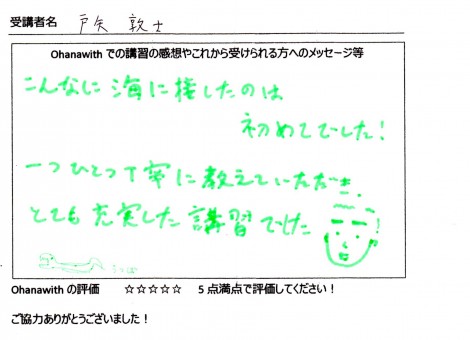 受講者名 戸矢 敦士
Ohanawith での講習の感想やこれから受けられる方へのメッセージ等
こんなに海に接したのは
初めてでした!
一つひとつ丁寧に教えていただき、
とても充実した講習でした
Ohanawith の評価 ☆☆☆☆☆ 5点満点で評価してください!
ご協力ありがとうございました!